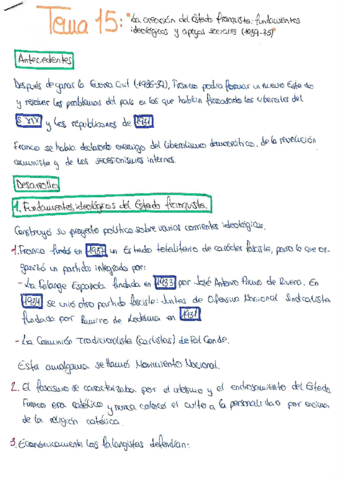 Tema 15: "La creación del Estado franquista: fundamentos
ideológicos y apoyos sociales (1939-75)"
Antecedentes
Después de ganar la Guerra Civil (1936-39), Franco podía formar un nuevo Estado
y resolver los problemas del país en los que habían fracasado los liberales del
S XIX y los republicanos de 1931.
Franco se había declarado enemigo del liberalismo democrático, de la revolución
comunista y de los secesionismos internos.
Desarrollo
1. Fundamentos ideológicos del Estado franquista.
Construyó su proyecto político sobre varias corrientes ideológicas.
1. Franco fundó en 1937 un Estado totalitario de carácter fascista, para lo que or-
ganizó un partido integrado por:
- La Falange Española fundada en 1933 por José Antonio Primo de Rivera. En
1934 se unió otro partido fascista: Juntas de Ofensiva Nacional Sindicalista
fundado por Ramiro de Ledesma en 1931
- La Comunión Tradicionalista (carlistas) de Fal Conde.
Esta amalgama se llamó Movimiento Nacional.
2. El fascismo se caracterizaba por el ateísmo y el endiosamiento del Estado.
Franco era católico y nunca colocó el culto a la personalidad por encima
de la religión católica.
3. Económicamente los falangistas defendían: